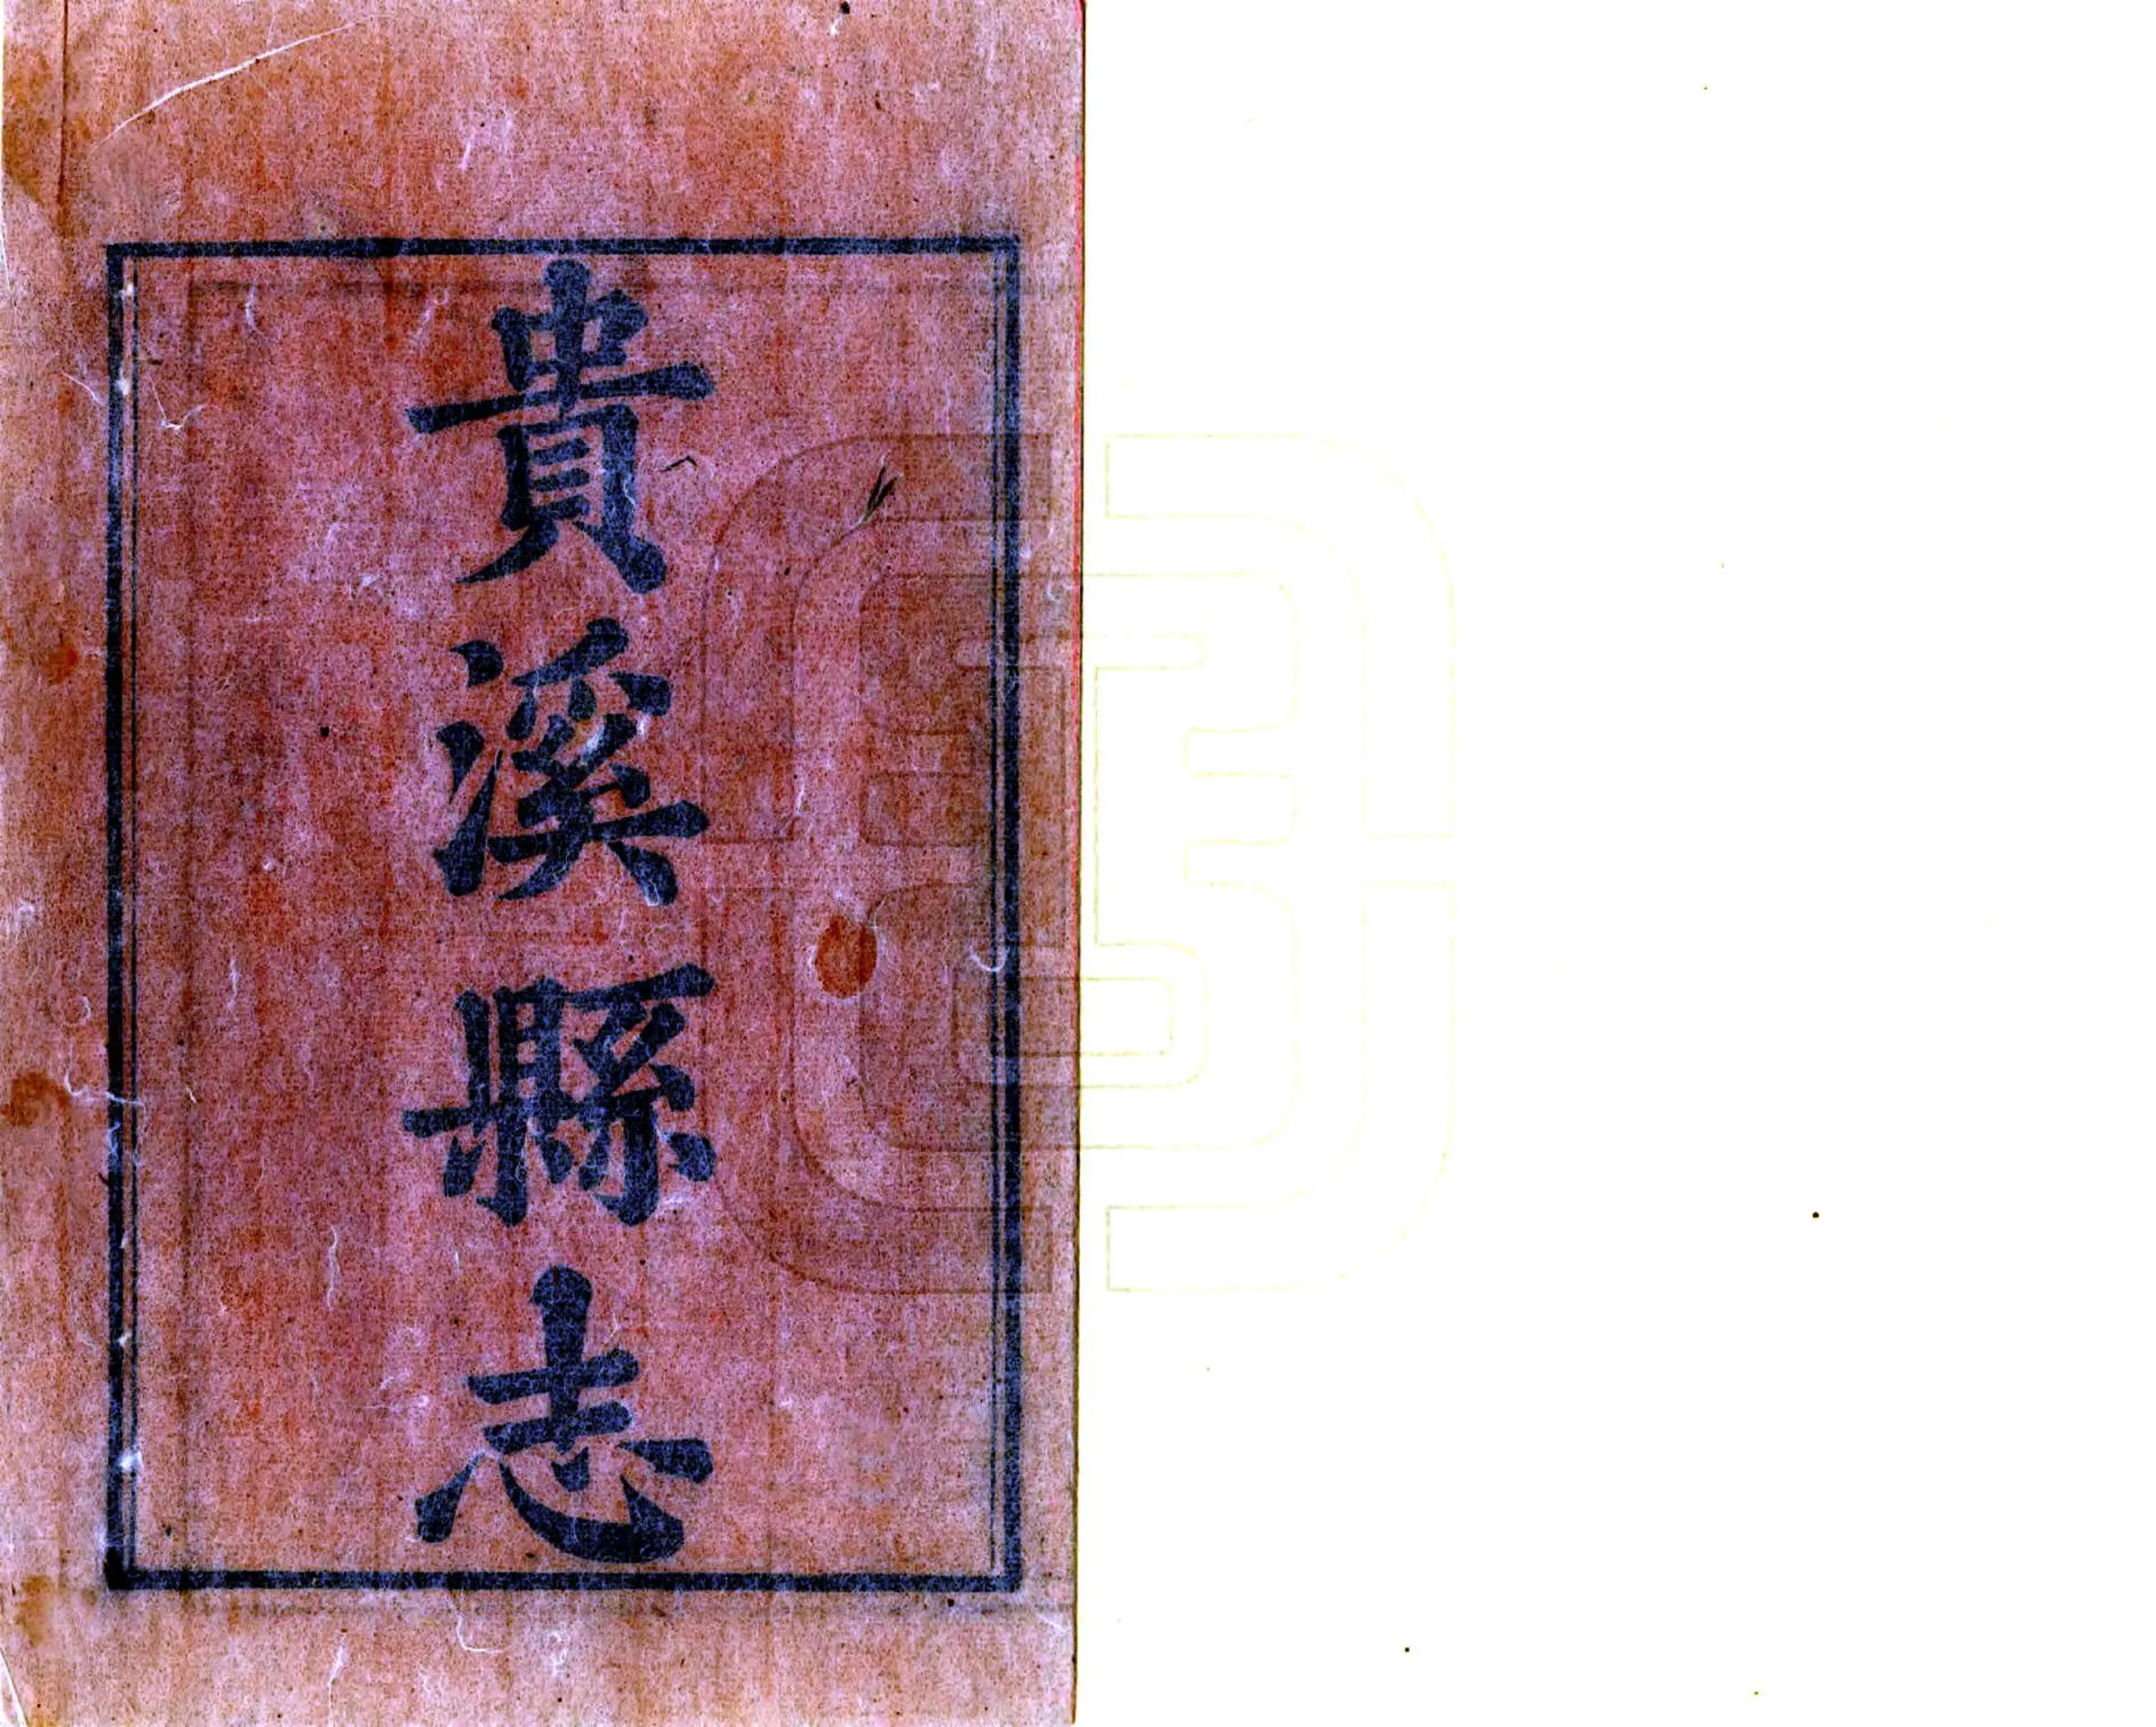 貴溪縣志